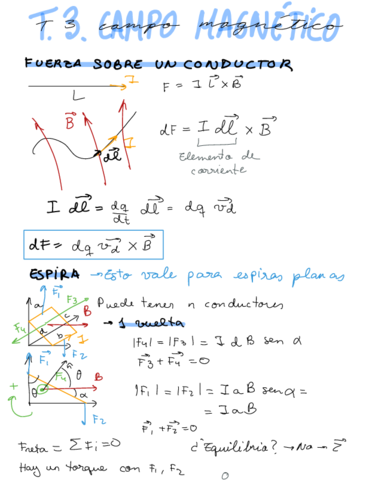 T. 3. CAMPO MAGNÉTICO
T. 3 campo magnético
FUERZA SOBRE UN CONDUCTOR
I
L
F = I L⃗ × B⃗
B⃗
I
dl⃗
dF = I dl⃗ × B⃗
Elemento de
corriente
I dl⃗ = dq/dt dl⃗ = dq v⃗d
dF = dq v⃗d × B⃗
ESPIRA → Esto vale para espiras planas
F⃗1
a
F3
c
d
B
F4
b
I
F⃗1
F2
Puede tener n conductores
→ 1 vuelta
|F4| = |F3| = I d B sen α
F⃗3 + F⃗4 = 0
θ
F4
θ
B
+
α
F2
|F1| = |F2| = I a B sen α =
= I a B
F⃗1 + F⃗2 = 0
Fneta = ∑ Fi = 0
¿Equilibrio? → No →
Hay un torque con F1, F2